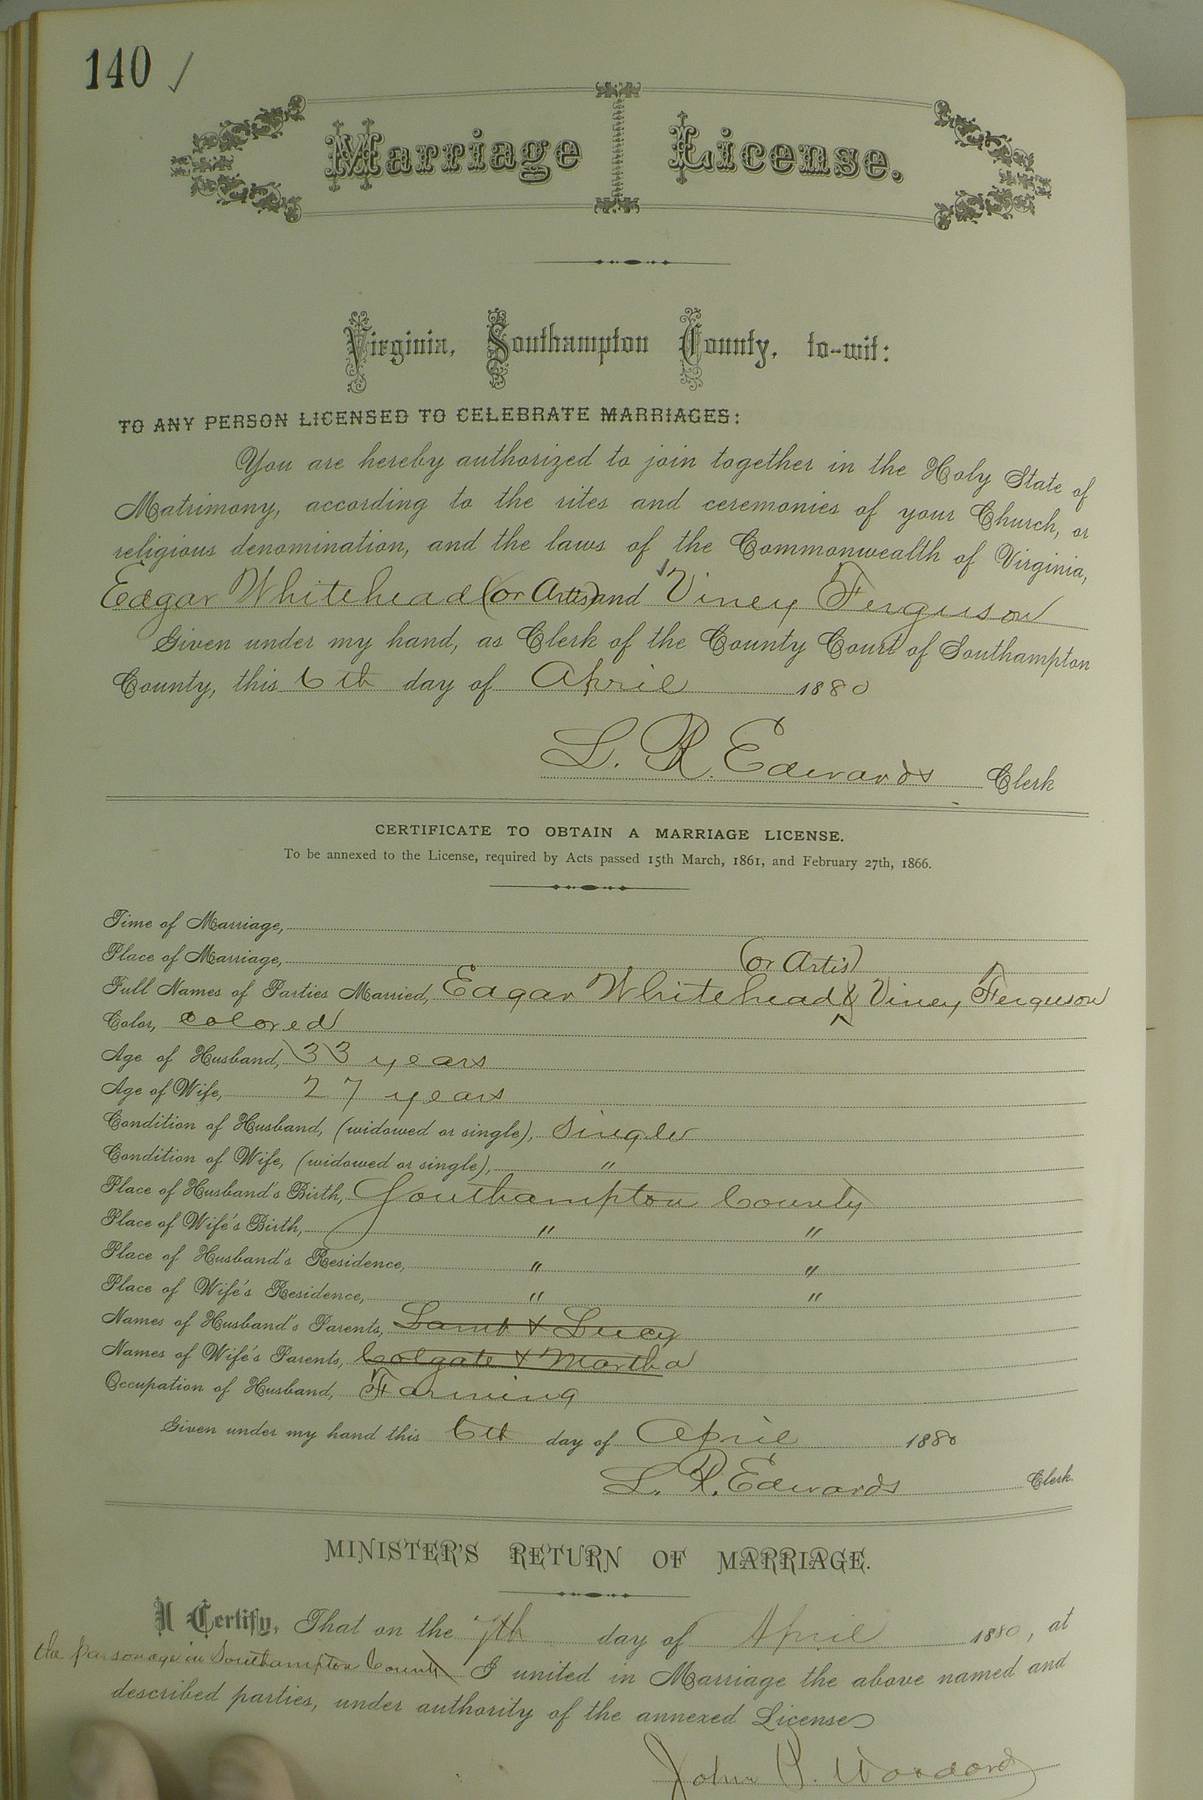 140 ✓
Marriage License.
Virginia, Southampton County, to-wit:
TO ANY PERSON LICENSED TO CELEBRATE MARRIAGES:
You are hereby authorized to join together in the Holy State of
Matrimony, according to the rites and ceremonies of your Church, or
religious denomination, and the laws of the Commonwealth of Virginia,
Edgar Whitehead (or Artis) and Viney Ferguson
Given under my hand, as Clerk of the County Court of Southampton
County, this 6th day of April 1880
L. R. Edwards Clerk
CERTIFICATE TO OBTAIN A MARRIAGE LICENSE.
To be annexed to the License, required by Acts passed 15th March, 1861, and February 27th, 1866.
Time of Marriage,
Place of Marriage,
(or Artis)
Full Names of Parties Married, Edgar Whitehead & Viney Ferguson
Color, colored
Age of Husband, 33 years
Age of Wife, 27 years
Condition of Husband, (widowed or single), single
Condition of Wife, (widowed or single), "
Place of Husband's Birth, Southampton County
Place of Wife's Birth, " "
Place of Husband's Residence, " "
Place of Wife's Residence, " "
Names of Husband's Parents, & Lucy
Names of Wife's Parents, Colgate & Martha
Occupation of Husband, Farming
Given under my hand this 6th day of April 1880
L. R. Edwards Clerk.
MINISTER'S RETURN OF MARRIAGE.
I Certify, That on the 7th day of April 1880, at
the parsonage in Southampton County I united in Marriage the above named and
described parties, under authority of the annexed License
John P. Woodard